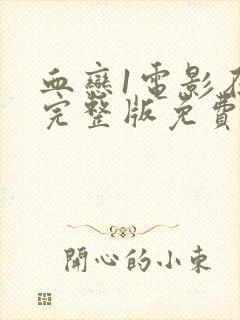 血戀1電影在
完整版免費
開心的小東